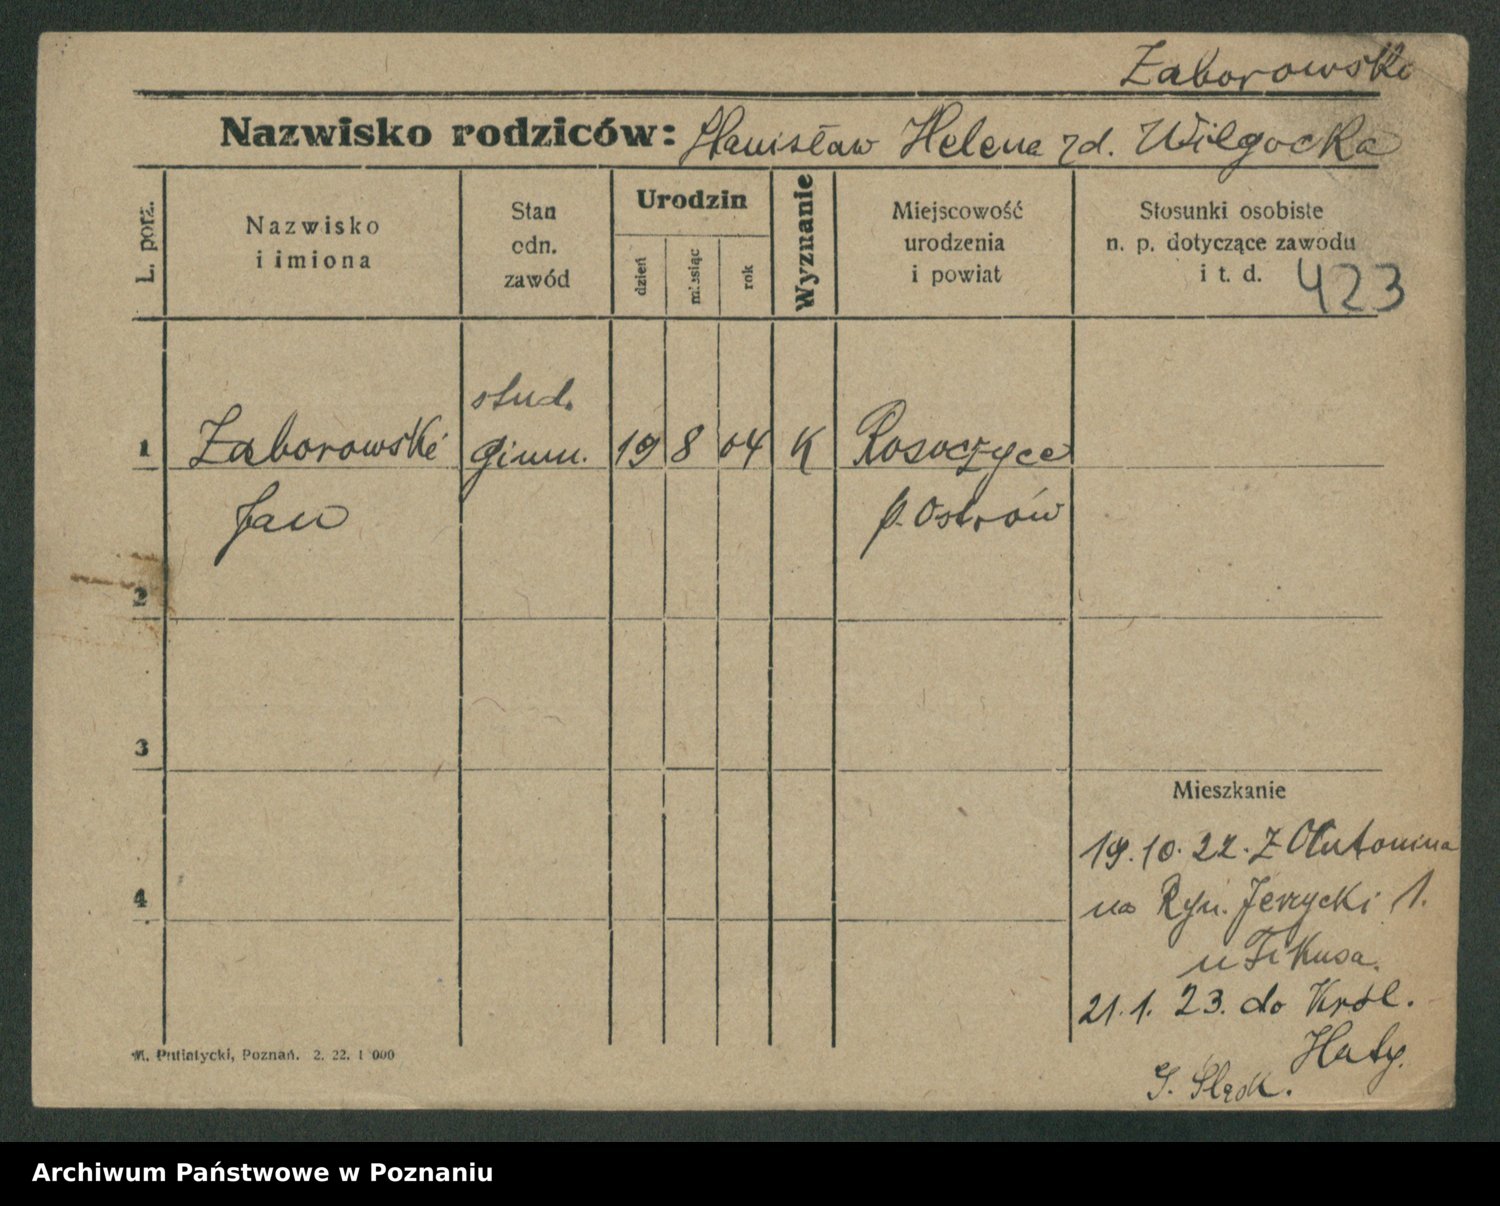 Zaborowski
Nazwisko rodziców: Stanisław Helena rd. Wilgocka
L. porz.
Nazwisko
i imiona
Stan
odn.
zawód
Urodzin
dzień
miesiąc
rok
Wyznanie
Miejscowość
urodzenia
i powiat
Stosunki osobiste
n. p. dotyczące zawodu
i t. d. 423
stud.
1 Zaborowski gimn. 19 8 04 K Rososzyce
Jan p. Ostrów
2
3
Mieszkanie
19.10.22. z Antonina
4
na Ryn. Jerzycki 1.
u Fikusa.
21.1.23. do Król.
Huty.
G. Śląsk.
M. Putiatycki, Poznań. 2. 22. 1 000
Archiwum Państwowe w Poznaniu